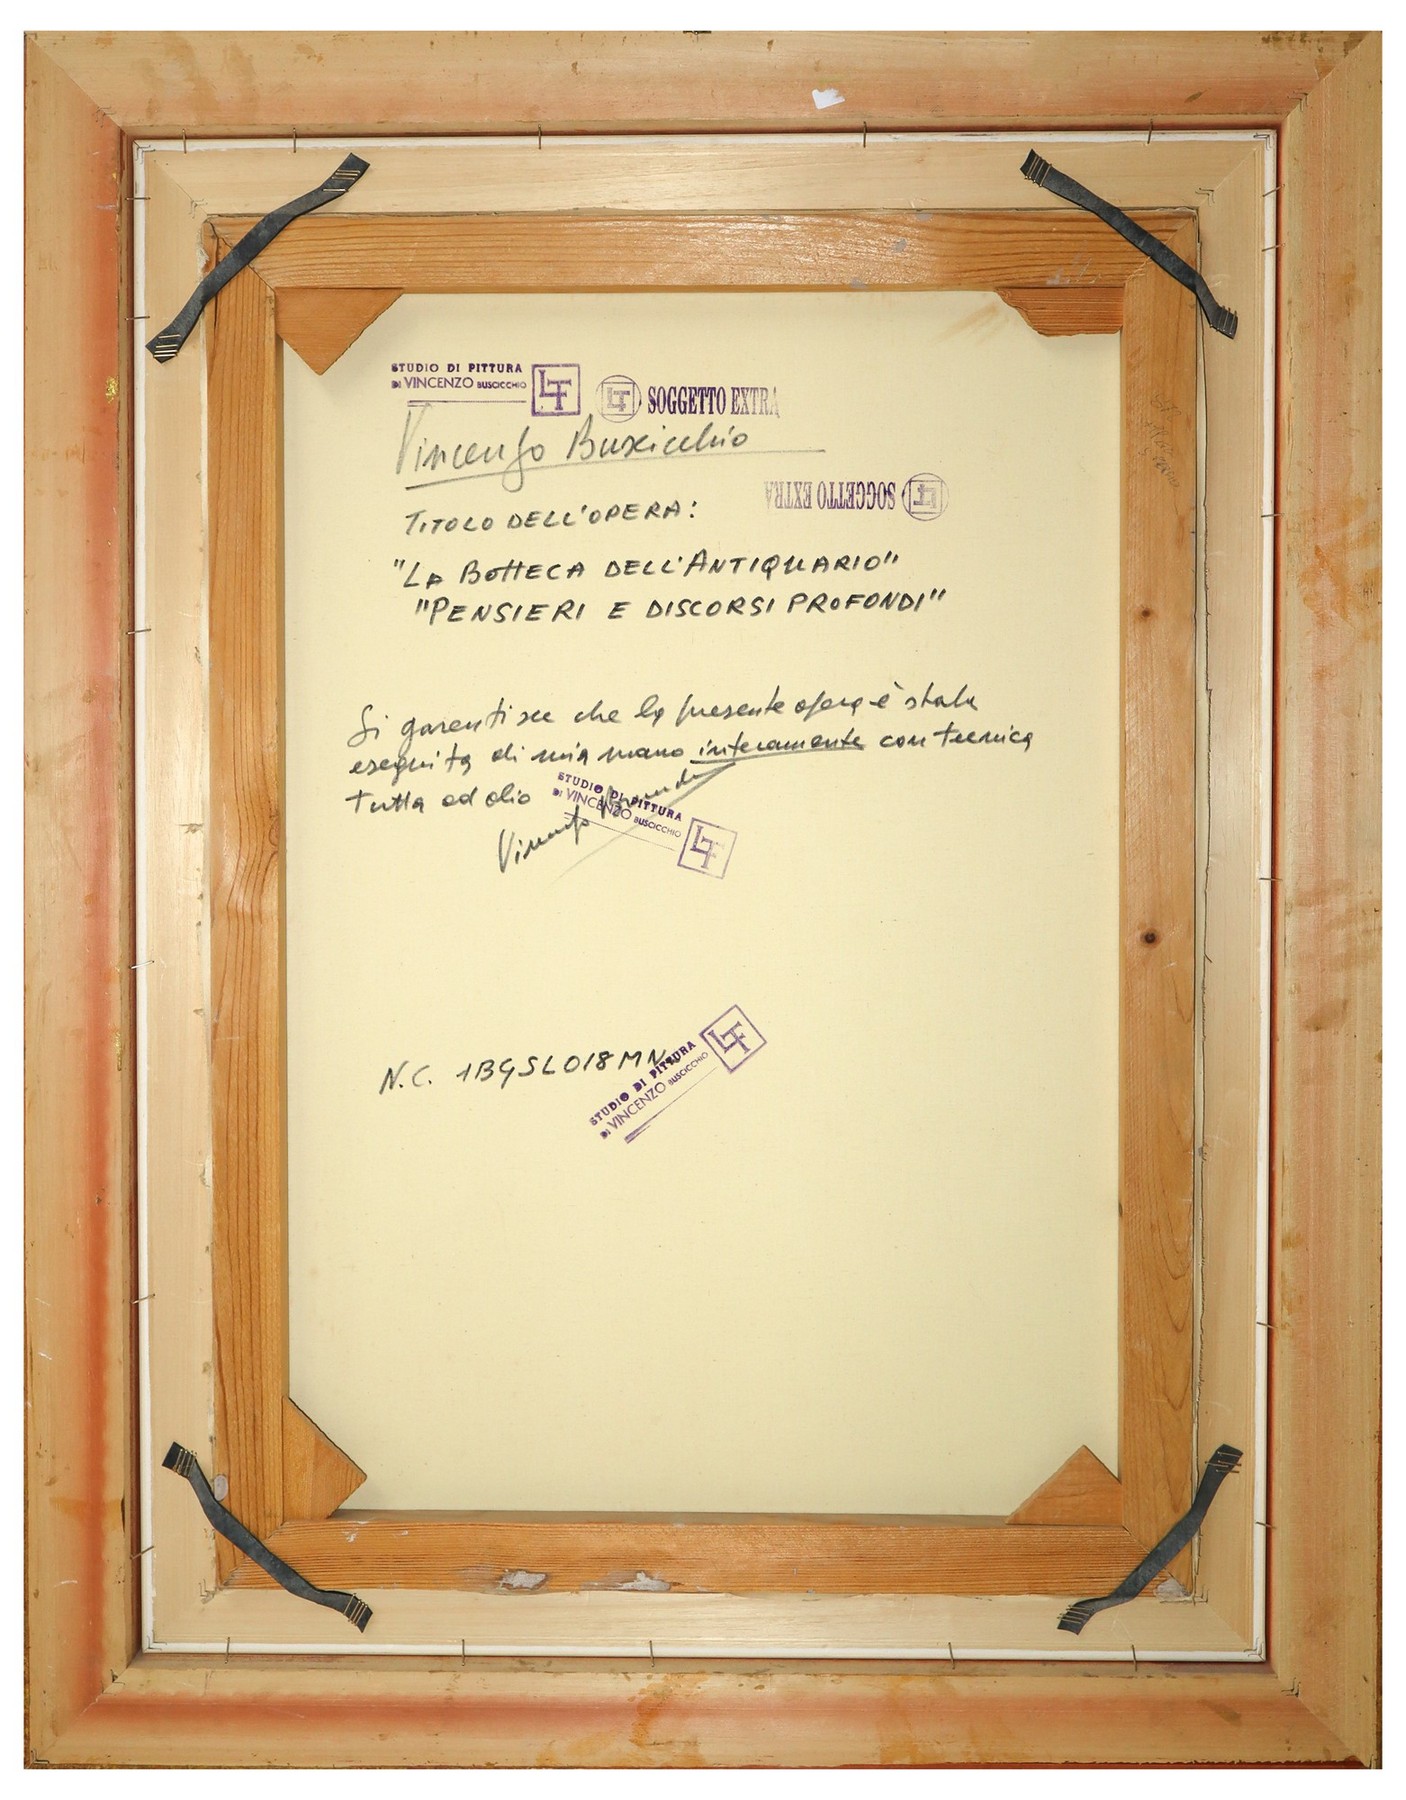 STUDIO DI PITTURA
DI VINCENZO BUSCICCHIO LTF
LTF SOGGETTO EXTRA
Vincenzo Buscicchio
SOGGETTO EXTRA LTF
TITOLO DELL'OPERA:
"LA BOTTEGA DELL'ANTIQUARIO"
"PENSIERI E DISCORSI PROFONDI"
Si garantisce che la presente opera è stata
eseguita di mia mano interamente con tecnica
tutta ad olio
STUDIO DI PITTURA
DI VINCENZO BUSCICCHIO LTF
Vincenzo
N.C. 1B9SL018MN
STUDIO DI PITTURA
DI VINCENZO BUSCICCHIO LTF